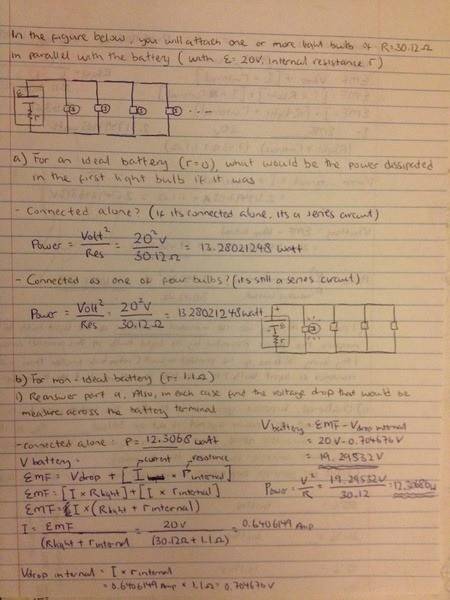 In the figure below, you will attach one or more light bulbs of R=30.12Ω
in parallel with the battery (with ε= 20V, internal resistance r)
ε
r
a) For an ideal battery (r=0), what would be the power dissipated
in the first light bulb if it was
- Connected alone? (if its connected alone, its a series circuit)
Power = Volt² / Res = 20² V / 30.12Ω = 13.28021248 watt
- Connected as one of four bulbs? (its still a series circuit)
Power = Volt² / Res = 20² V / 30.12Ω = 13.28021248 watt
+
- ε
r
b) For non-ideal battery (r= 1.1Ω)
i) Reanswer part a, Also, in each case find the voltage drop that would be
measure across the battery terminal
- connected alone: P= 12.3068 watt
V battery = EMF - Vdrop internal
= 20V - 0.704676V
= 19.29532V
Power = V² / R = 19.29532V / 30.12 = 12.3068w
V battery:
current resistance
EMF = Vdrop + [I × rinternal]
EMF = [I × Rlight] + [I × rinternal]
EMF = I × (Rlight + rinternal)
I = EMF / (Rlight + rinternal = 20V / (30.12Ω + 1.1Ω) = 0.6406149 Amp
Vdrop internal = I × rinternal
= 0.6406149 Amp × 1.1Ω = 0.704676V